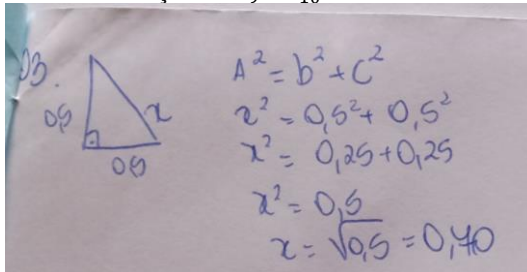 03.
0,5
x
0,5
A² = b² + c²
x² = 0,5² + 0,5²
x² = 0,25 + 0,25
x² = 0,5
x = √0,5 = 0,70